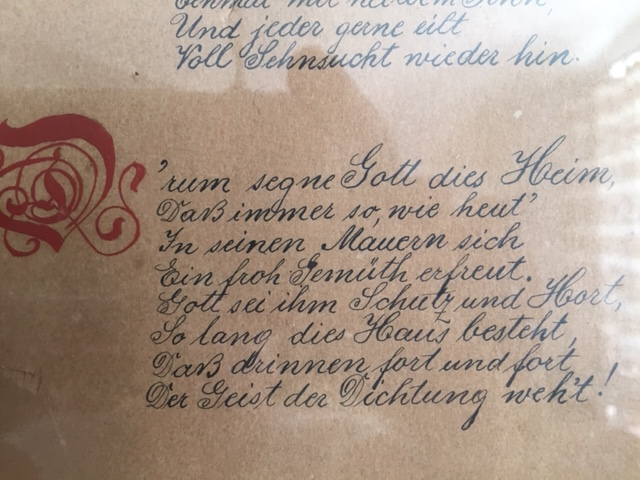 Und jeder gerne eilt
Voll Sehnsucht wieder hin.
D'rum segne Gott dies Heim,
Daß immer so, wie heut'
In seinen Mauern sich
Ein froh Gemüth erfreut.
Gott sei ihm Schutz und Hort,
So lang dies Haus besteht,
Daß drinnen fort und fort
Der Geist der Dichtung weh't!